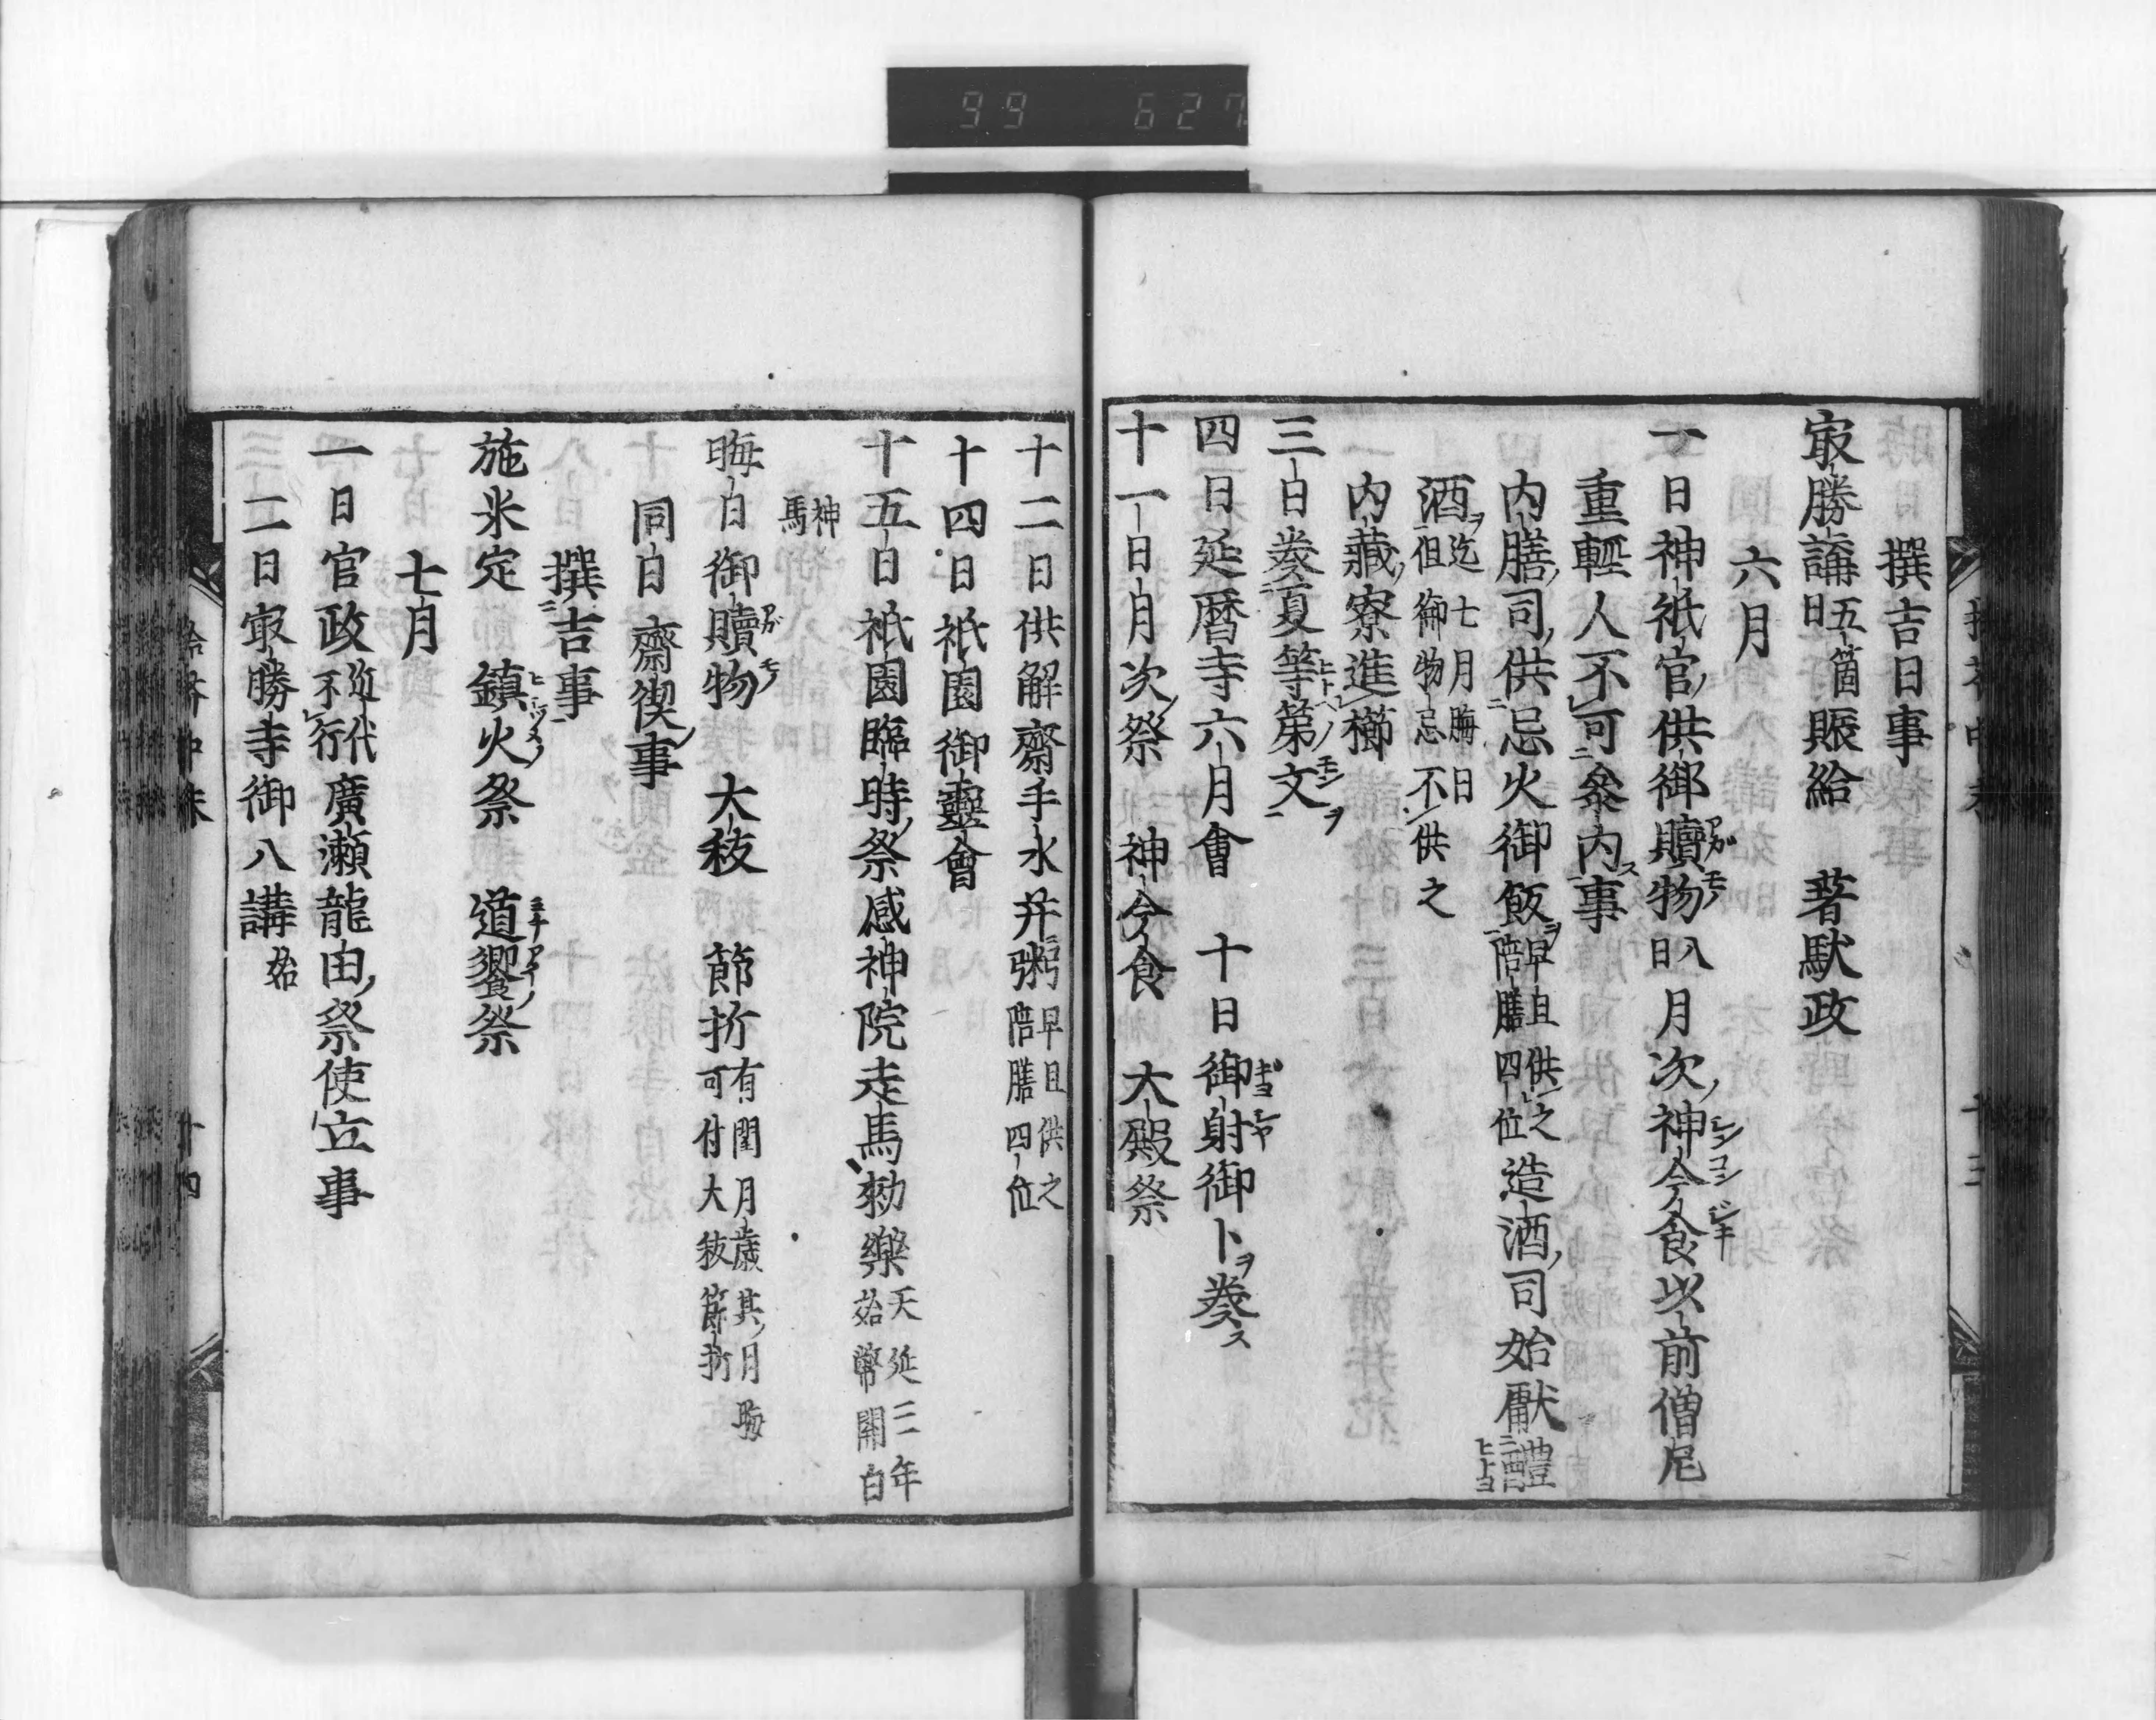 99 627
撰吉日事
㝡勝講五箇日 賑給 著駄政
六月
一日神祇官供御贖物八日月次神今食以前僧尼
重輕人不可參内事
内膳司供忌火御飯早旦供之陪膳四位造酒司始獻醴
酒迄七月晦日但御物忌不供之
内藏寮進櫛
三日奏夏等第文
四日延曆寺六月會 十日御射御卜奏
十一日月次祭 神今食 大殿祭
十二日供解齋手水并粥早旦供之陪膳四位
十四日祇園御靈會
十五日祇園臨時祭感神院走馬勅樂天延三年始幣關白
神馬
晦日御贖物 大秡 節折有閏月歲其月晦可付大秡節折
同日齋禊事
撰吉事
施米定 鎮火祭 道饗祭
七月
一日官政近代不行廣瀨龍田祭使立事
二日㝡勝寺御八講始